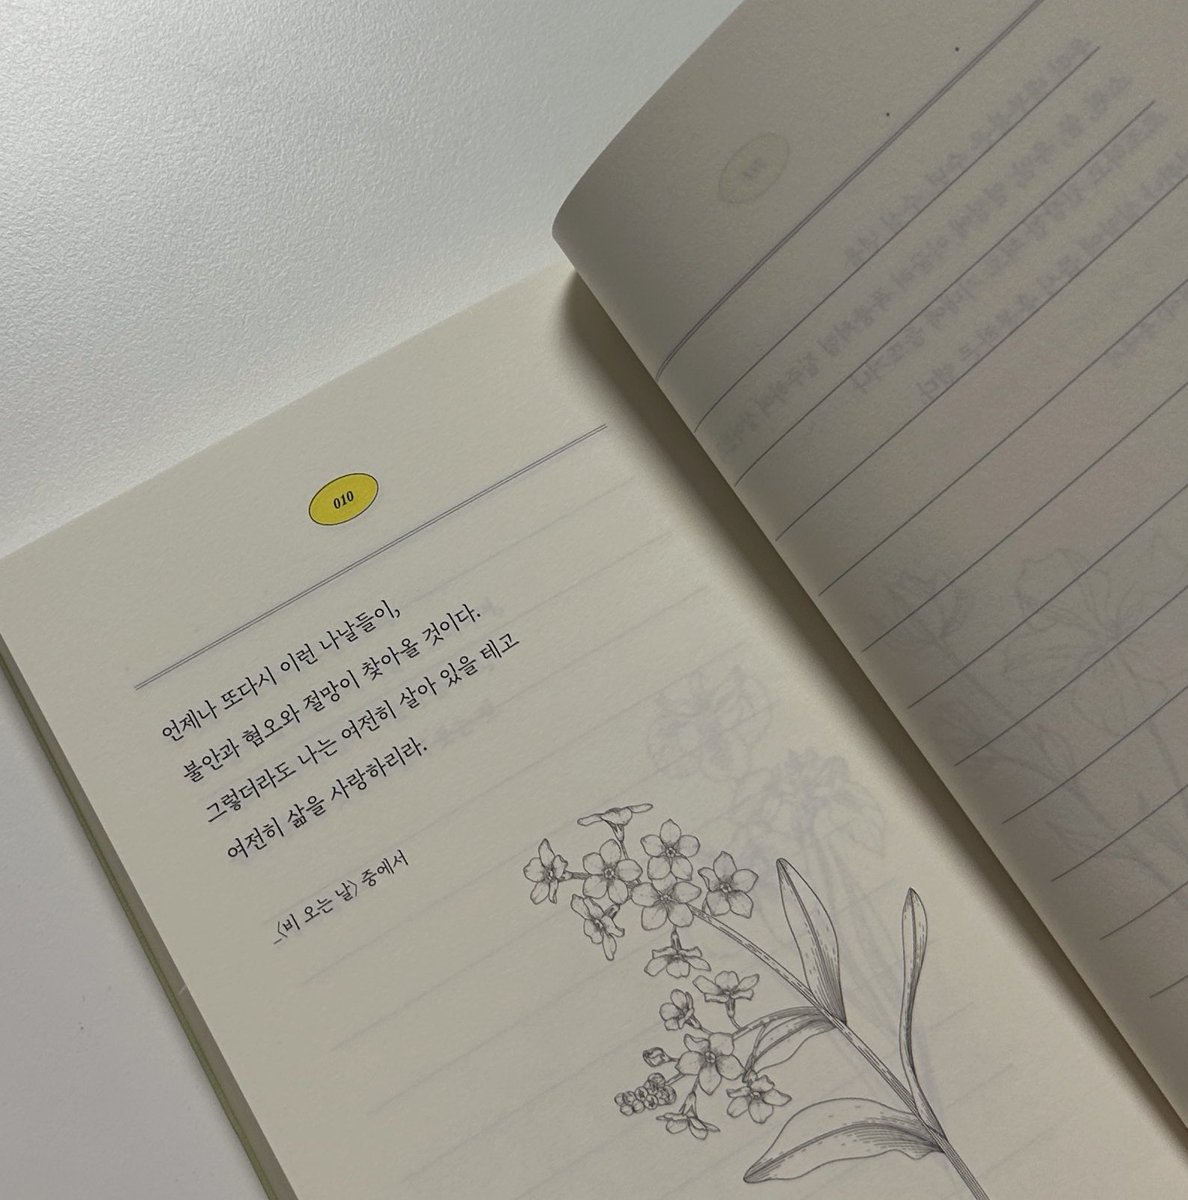 010
언제나 또다시 이런 나날들이,
불안과 혐오와 절망이 찾아올 것이다.
그렇더라도 나는 여전히 살아 있을 테고
여전히 삶을 사랑하리라.
_〈비 오는 날〉 중에서